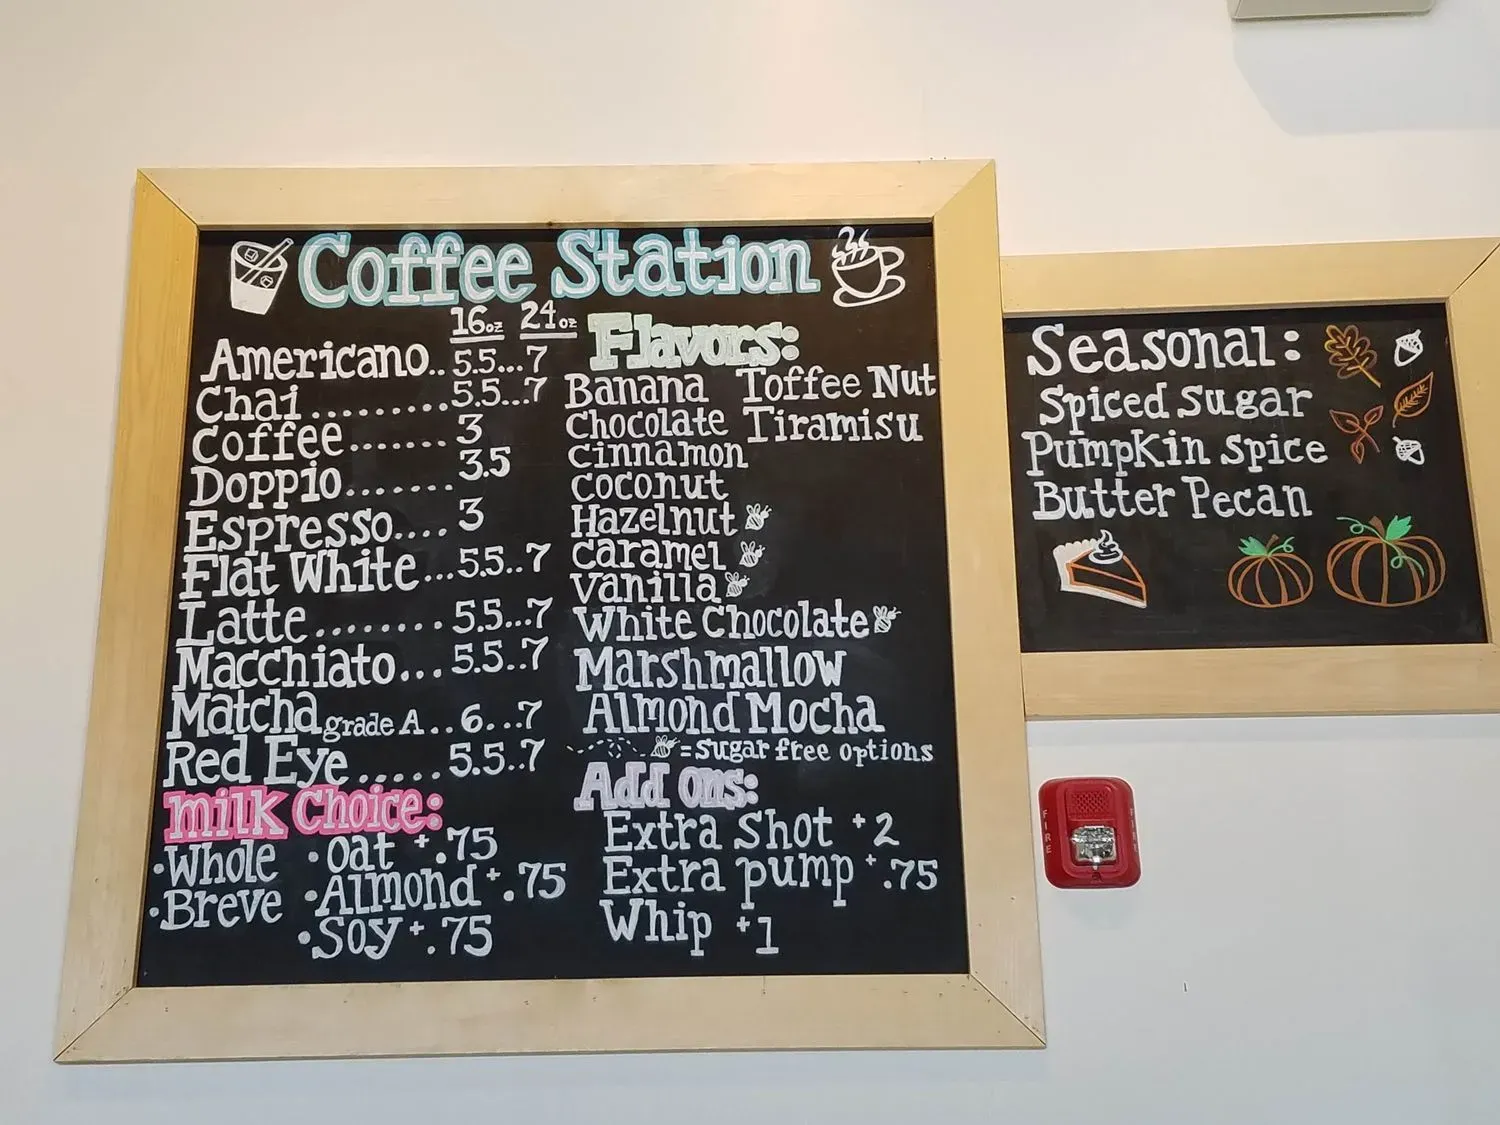 Coffee Station
16oz 24oz
Americano..5.5...7
Chai.........5.5...7
Coffee.......3
Doppio.......3.5
Espresso....3
Flat White...5.5..7
Latte........5.5...7
Macchiato...5.5..7
Matcha grade A..6...7
Red Eye.....5.5..7
Milk Choice:
•Whole •Oat +.75
•Breve •Almond +.75
•Soy +.75
Flavors:
Banana Toffee Nut
Chocolate Tiramisu
Cinnamon
Coconut
Hazelnut
Caramel
Vanilla
White Chocolate
Marshmallow
Almond Mocha
=sugar free options
Add ons:
Extra Shot +2
Extra pump +.75
Whip +1
Seasonal:
Spiced Sugar
Pumpkin Spice
Butter Pecan
FIRE